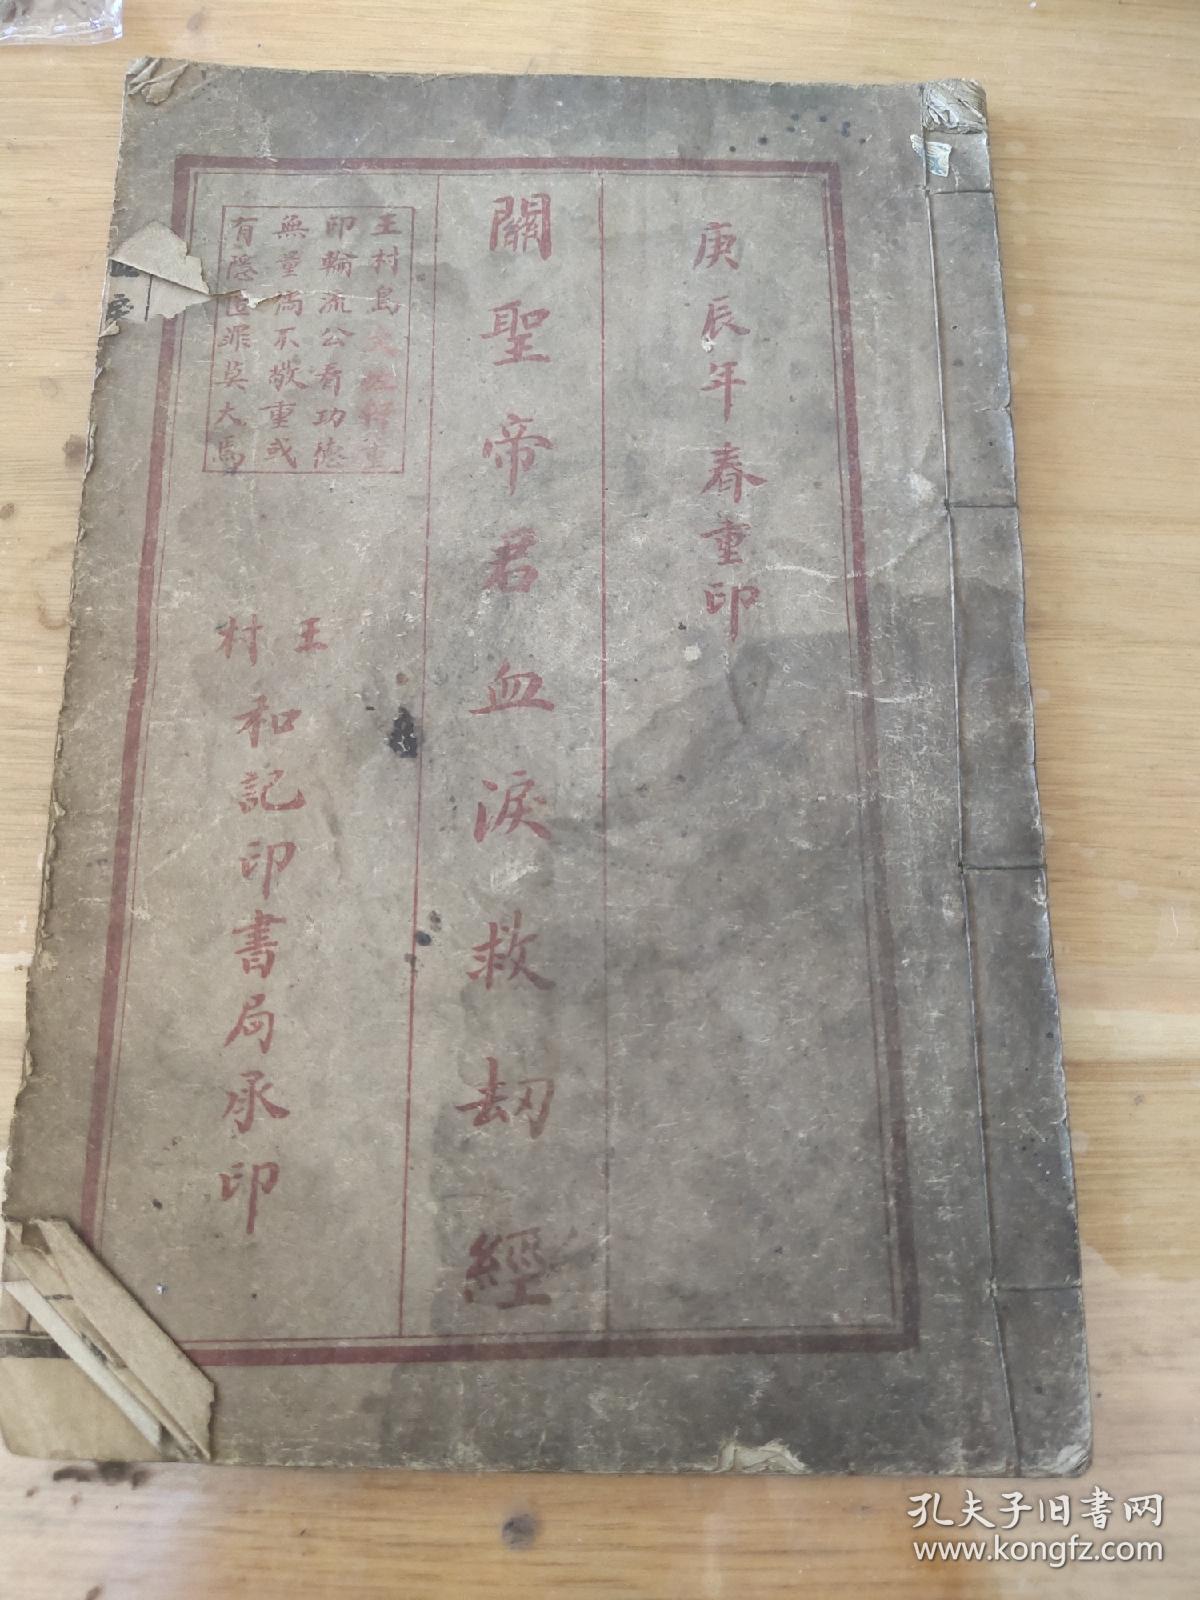 庚辰年春重印
關聖帝君血淚救劫經
王村鳥文 重
印輪流公看功德
無量倘不敬重或
有隱匿罪莫大焉
王村
和記印書局承印
孔夫子旧书网
www.kongfz.com